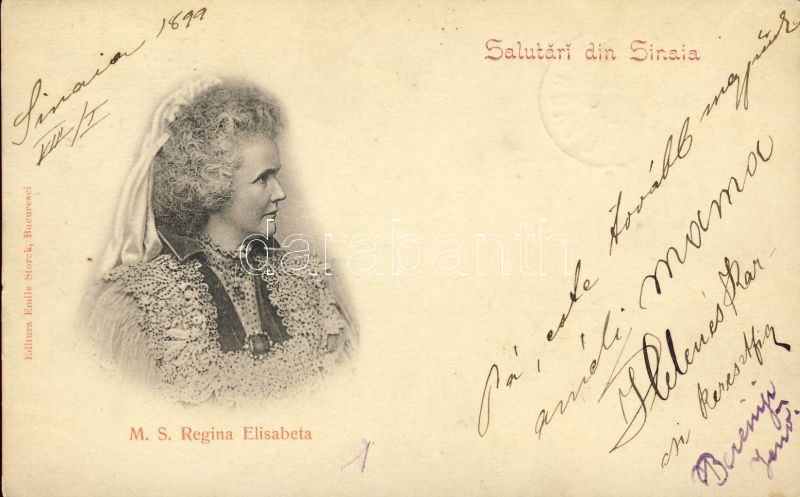 Sinaia 1899
VIII/I
Salutări din Sinaia
Editura Emile Storck, Bucuresci
M. S. Regina Elisabeta
darabanth
Pá, este tovább
mama
Helen és Kar-
si keresztfia
Jenő